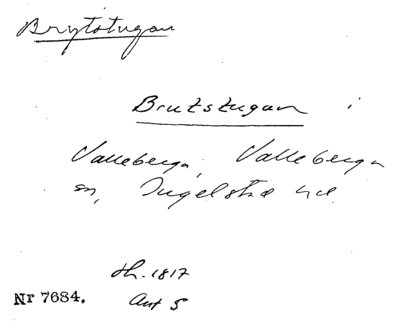 Brytstugan
Brutstugan i
Valleberga, Valleberga
sn, Ingelstad hd.
Sh. 1817
Nr 7684. Ant 5